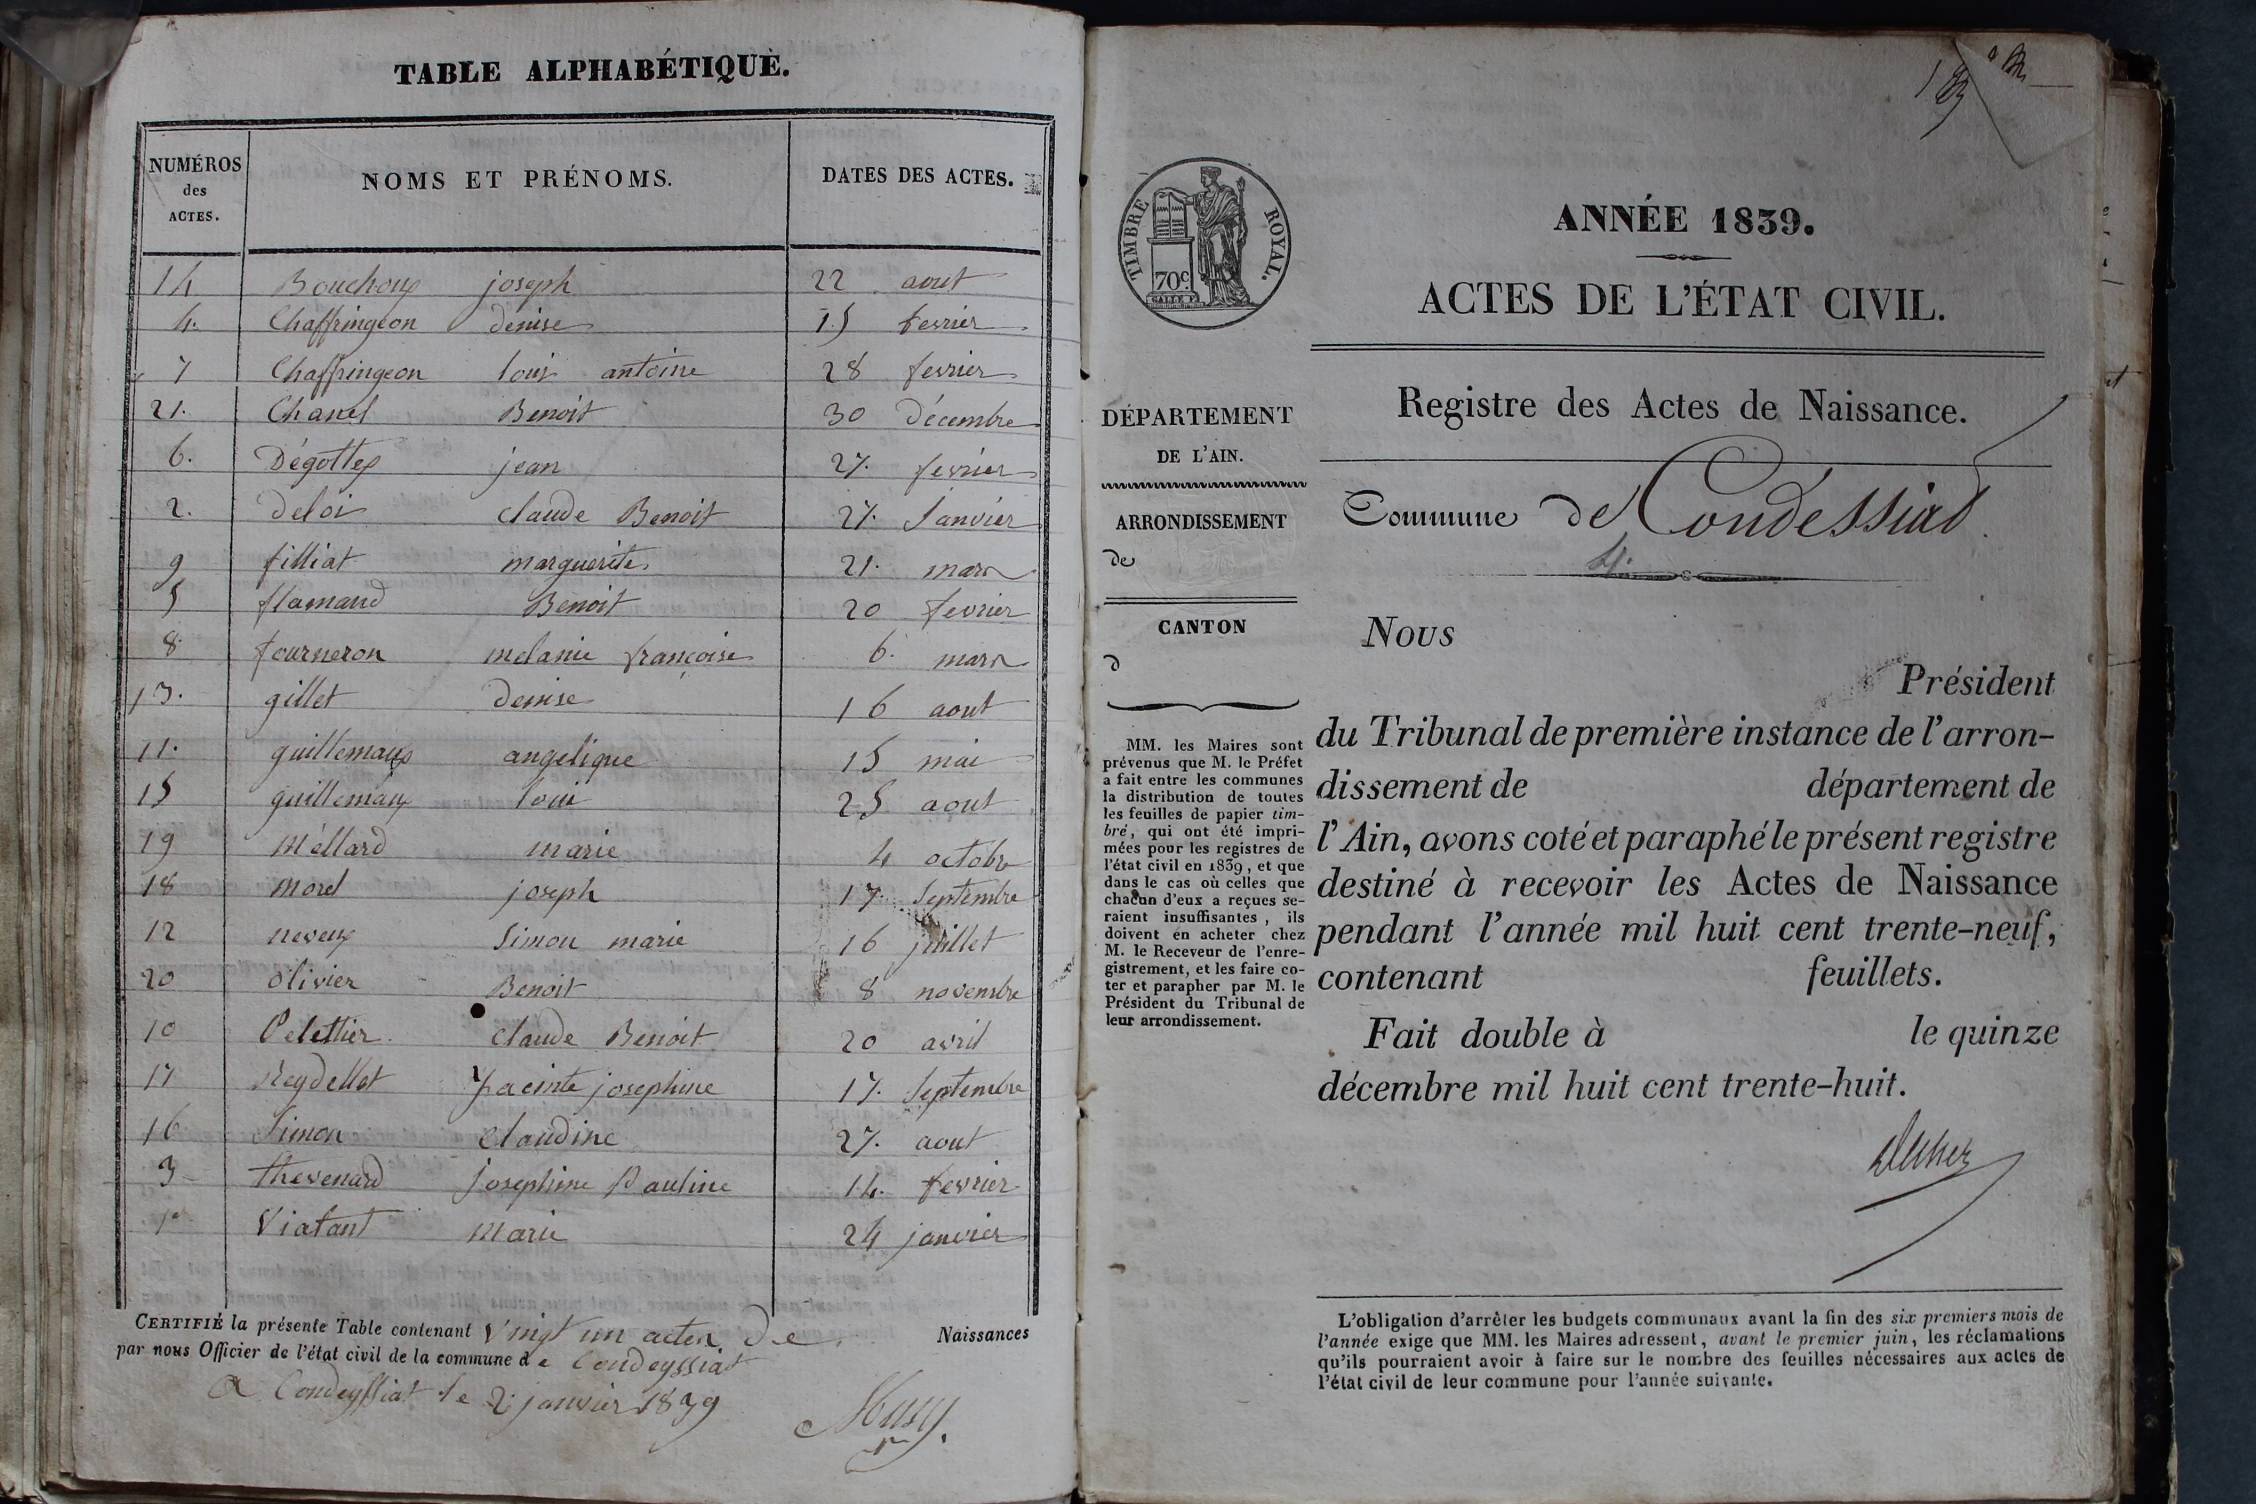 TABLE ALPHABÉTIQUE.
NUMÉROS des ACTES. NOMS ET PRÉNOMS. DATES DES ACTES.
14 Bouchoux joseph 22 aout
4. Chaffringeon denise 15 fevrier
7 Chaffringeon louis antoine 28 fevrier
21. Chanel Benoit 30 Décembre
6. Dégottex jean 27. fevrier
2. deloi claude Benoit 27. Janvier
9 filliat marguerite 21. mars
5 flamand Benoit 20 fevrier
8. fourneron melanie françoise 6. mars
13. gillet denise 16 aout
11. guillemaux angelique 15 mai
15 guillemaux loui 25 aout
19 Méllard marie 4 octobre
18 morel joseph 17. Septembre
12 neveux Simon marie 16 juillet
20 olivier Benoit 8 novembre
10 Pelettier claude Benoit 20 avril
17 Reydellet Jacinte josephine 17. Septembre
16 Simon Claudine 27. aout
3 thevenard josephine Pauline 14. fevrier
1er Viatant Marie 24 janvier
CERTIFIÉ la présente Table contenant Vingt un actes de Naissances
par nous Officier de l'état civil de la commune de Condeyssiat
A Condeyssiat le 2 janvier 1839
ANNÉE 1839.
ACTES DE L'ÉTAT CIVIL.
TIMBRE ROYAL.
70c
Registre des Actes de Naissance.
Commune de Condessiat
4.
DÉPARTEMENT
DE L'AIN.
ARRONDISSEMENT
de
CANTON
d
MM. les Maires sont
prévenus que M. le Préfet
a fait entre les communes
la distribution de toutes
les feuilles de papier tim-
bré, qui ont été impri-
mées pour les registres de
l'état civil en 1839, et que
dans le cas où celles que
chacun d'eux a reçues se-
raient insuffisantes, ils
doivent en acheter chez
M. le Receveur de l'enre-
gistrement, et les faire co-
ter et parapher par M. le
Président du Tribunal de
leur arrondissement.
Nous
Président
du Tribunal de première instance de l'arron-
dissement de département de
l'Ain, avons coté et paraphé le présent registre
destiné à recevoir les Actes de Naissance
pendant l'année mil huit cent trente-neuf,
contenant feuillets.
Fait double à le quinze
décembre mil huit cent trente-huit.
L'obligation d'arrêter les budgets communaux avant la fin des six premiers mois de
l'année exige que MM. les Maires adressent, avant le premier juin, les réclamations
qu'ils pourraient avoir à faire sur le nombre des feuilles nécessaires aux actes de
l'état civil de leur commune pour l'année suivante.